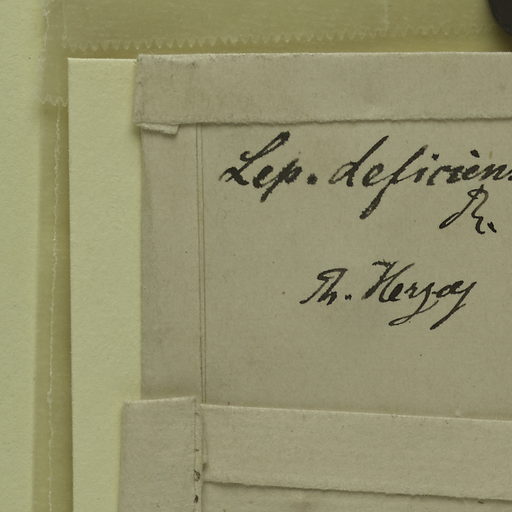 Lep. deficiens
R.
Th. Herzog